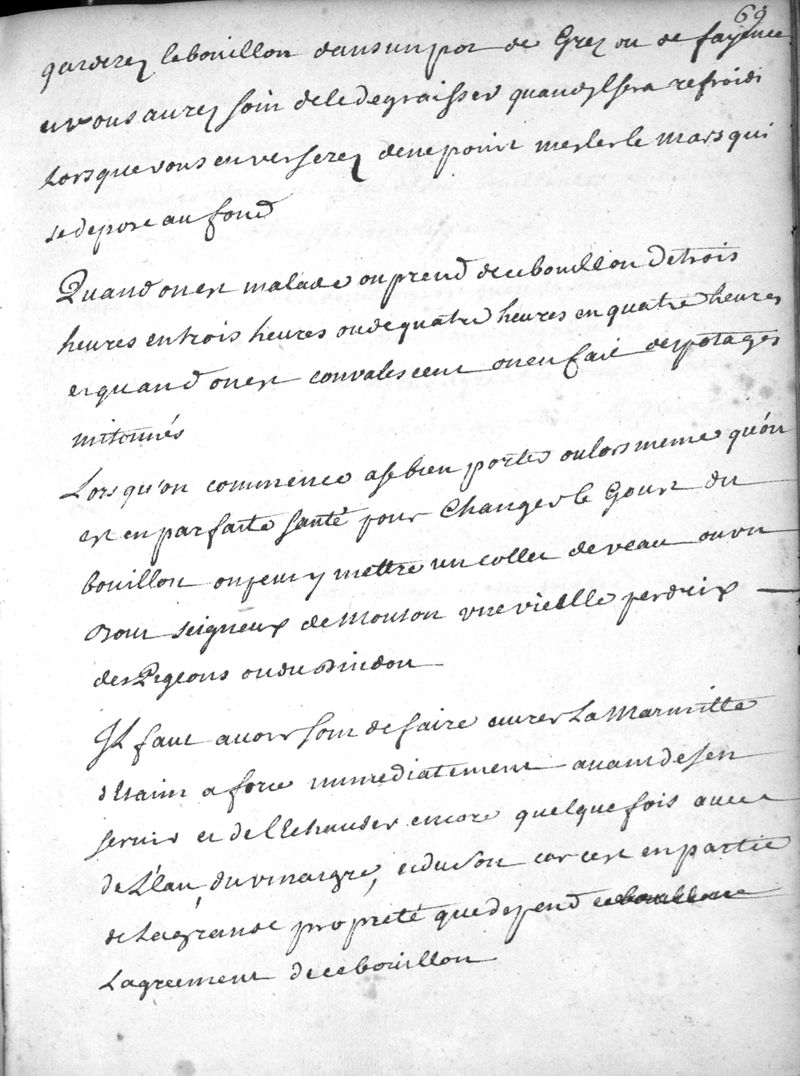 69
garderez le bouillon dans un pot de Grez ou de fayence
et vous aurez soin de le degraisser quand il sera refroidi
Lorsque vous en verserez de ne point mesler le marc qui
se depose au fond
Quand on est malade on prend de ce bouillon de trois
heures en trois heures ou de quatre heures en quatre heures
et quand on est convalescent on en fait des potages
mitonnés
Lorsqu'on commence a se bien porter ou lors meme qu'on
est en parfaite santé pour Changer le Goust du
bouillon on peut y mettre un collet de veau ou un
bout seigneux de Mouton une vieille perdrix
des Pigeons ou du Dindon
Il faut avoir soin de faire ecurer La Marmitte
d'Etaim a force immediatement avant de s'en
servir et de l'Echauder encore quelque fois avec
de L'Eau du vinaigre, et du son car c'est en partie
de La grande propreté que depend
L'agreement de ce bouillon